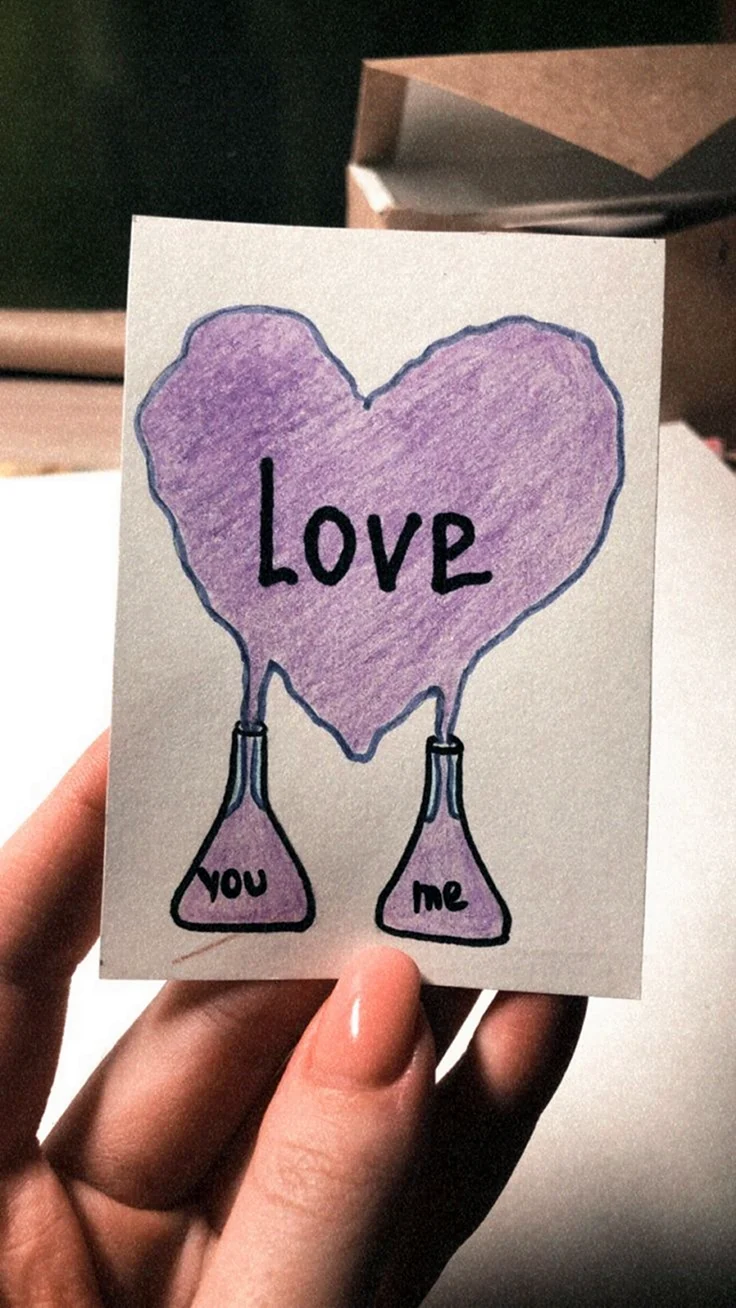 Love
you
me